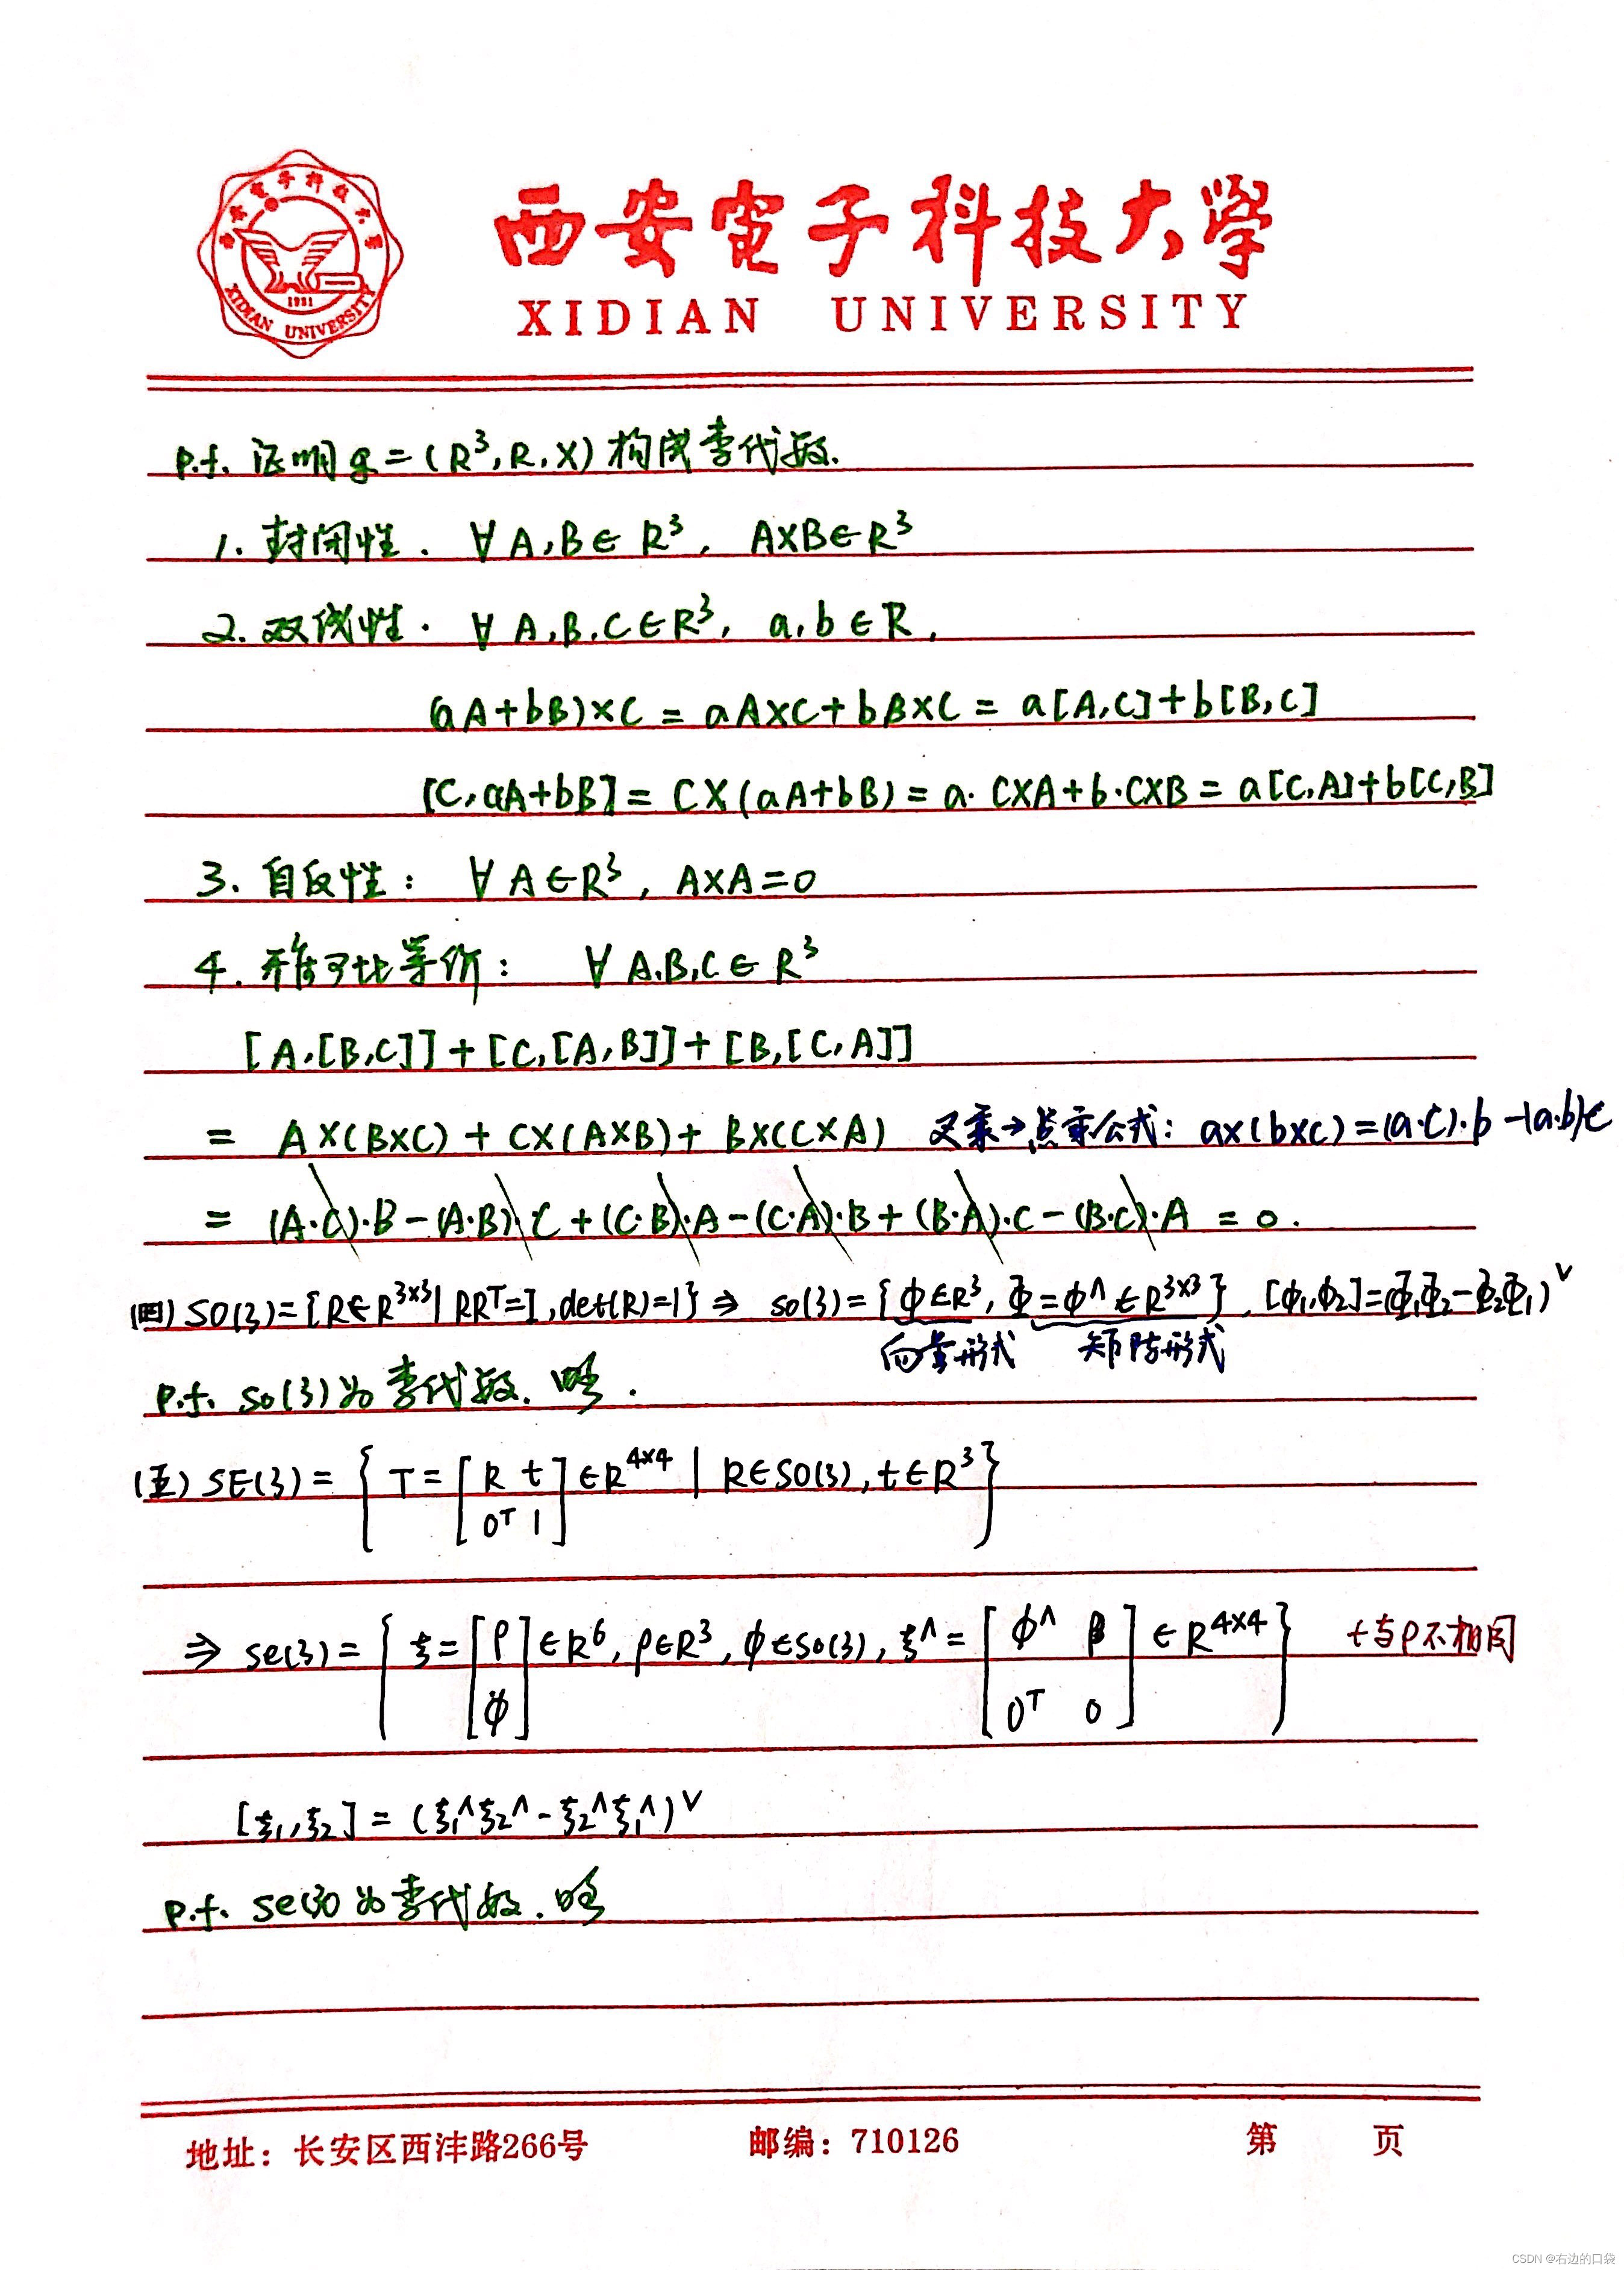 西安電子科技大學
XIDIAN UNIVERSITY
XIDIAN UNIVERSITY
1931
p.f. 证明 g=(R³,R,×)构成李代数.
1. 封闭性. ∀A,B∈R³, A×B∈R³
2. 双线性. ∀A,B,C∈R³, a,b∈R,
(aA+bB)×C = aA×C+bB×C = a[A,C]+b[B,C]
[C,aA+bB] = C×(aA+bB) = a·C×A+b·C×B = a[C,A]+b[C,B]
3. 自反性: ∀A∈R³, A×A=0
4. 雅可比等价: ∀A,B,C∈R³
[A,[B,C]]+[C,[A,B]]+[B,[C,A]]
= A×(B×C)+C×(A×B)+B×(C×A) 叉乘→点乘公式: a×(b×c)=(a·c)·b-(a·b)c
= (A·C)·B-(A·B)·C+(C·B)·A-(C·A)·B+(B·A)·C-(B·C)·A = 0.
(四) SO(3)={R∈R³ˣ³| RRᵀ=I,det(R)=1} ⇒ so(3)={ϕ∈R³, Φ=ϕ^∈R³ˣ³}, [ϕ₁,ϕ₂]=(Φ₁Φ₂-Φ₂Φ₁)^∨
向量形式 矩阵形式
p.f. so(3)为李代数. 略.
(五) SE(3)= { T= [R t; 0ᵀ 1] ∈R⁴ˣ⁴ | R∈SO(3), t∈R³}
⇒ se(3)= { ξ= [ρ; ϕ] ∈R⁶, ρ∈R³, ϕ∈so(3), ξ^= [ϕ^ ρ; 0ᵀ 0] ∈R⁴ˣ⁴} t与ρ不相同
[ξ₁,ξ₂] = (ξ₁^ξ₂^-ξ₂^ξ₁^)^∨
p.f. se(3)为李代数. 略
地址：长安区西沣路266号 邮编：710126 第 页
CSDN @右边的口袋